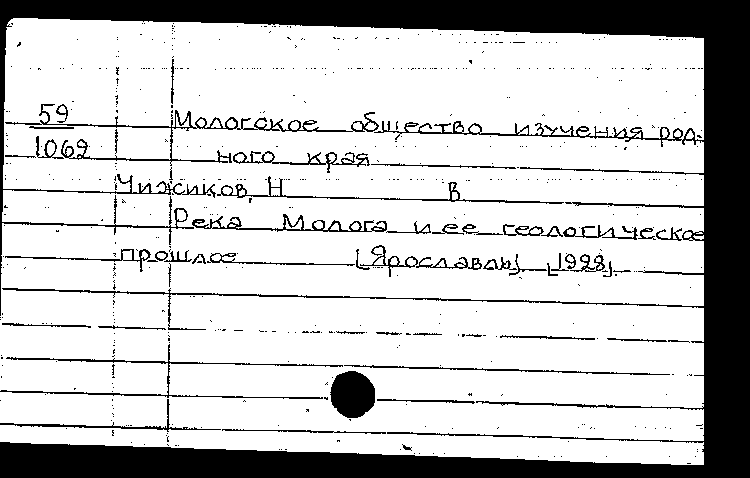 59 Мологское общество изучения род-
1069 ного края
Чижиков, Н В
Река Молога и ее геологическое
прошлое [Ярославль], [1928].